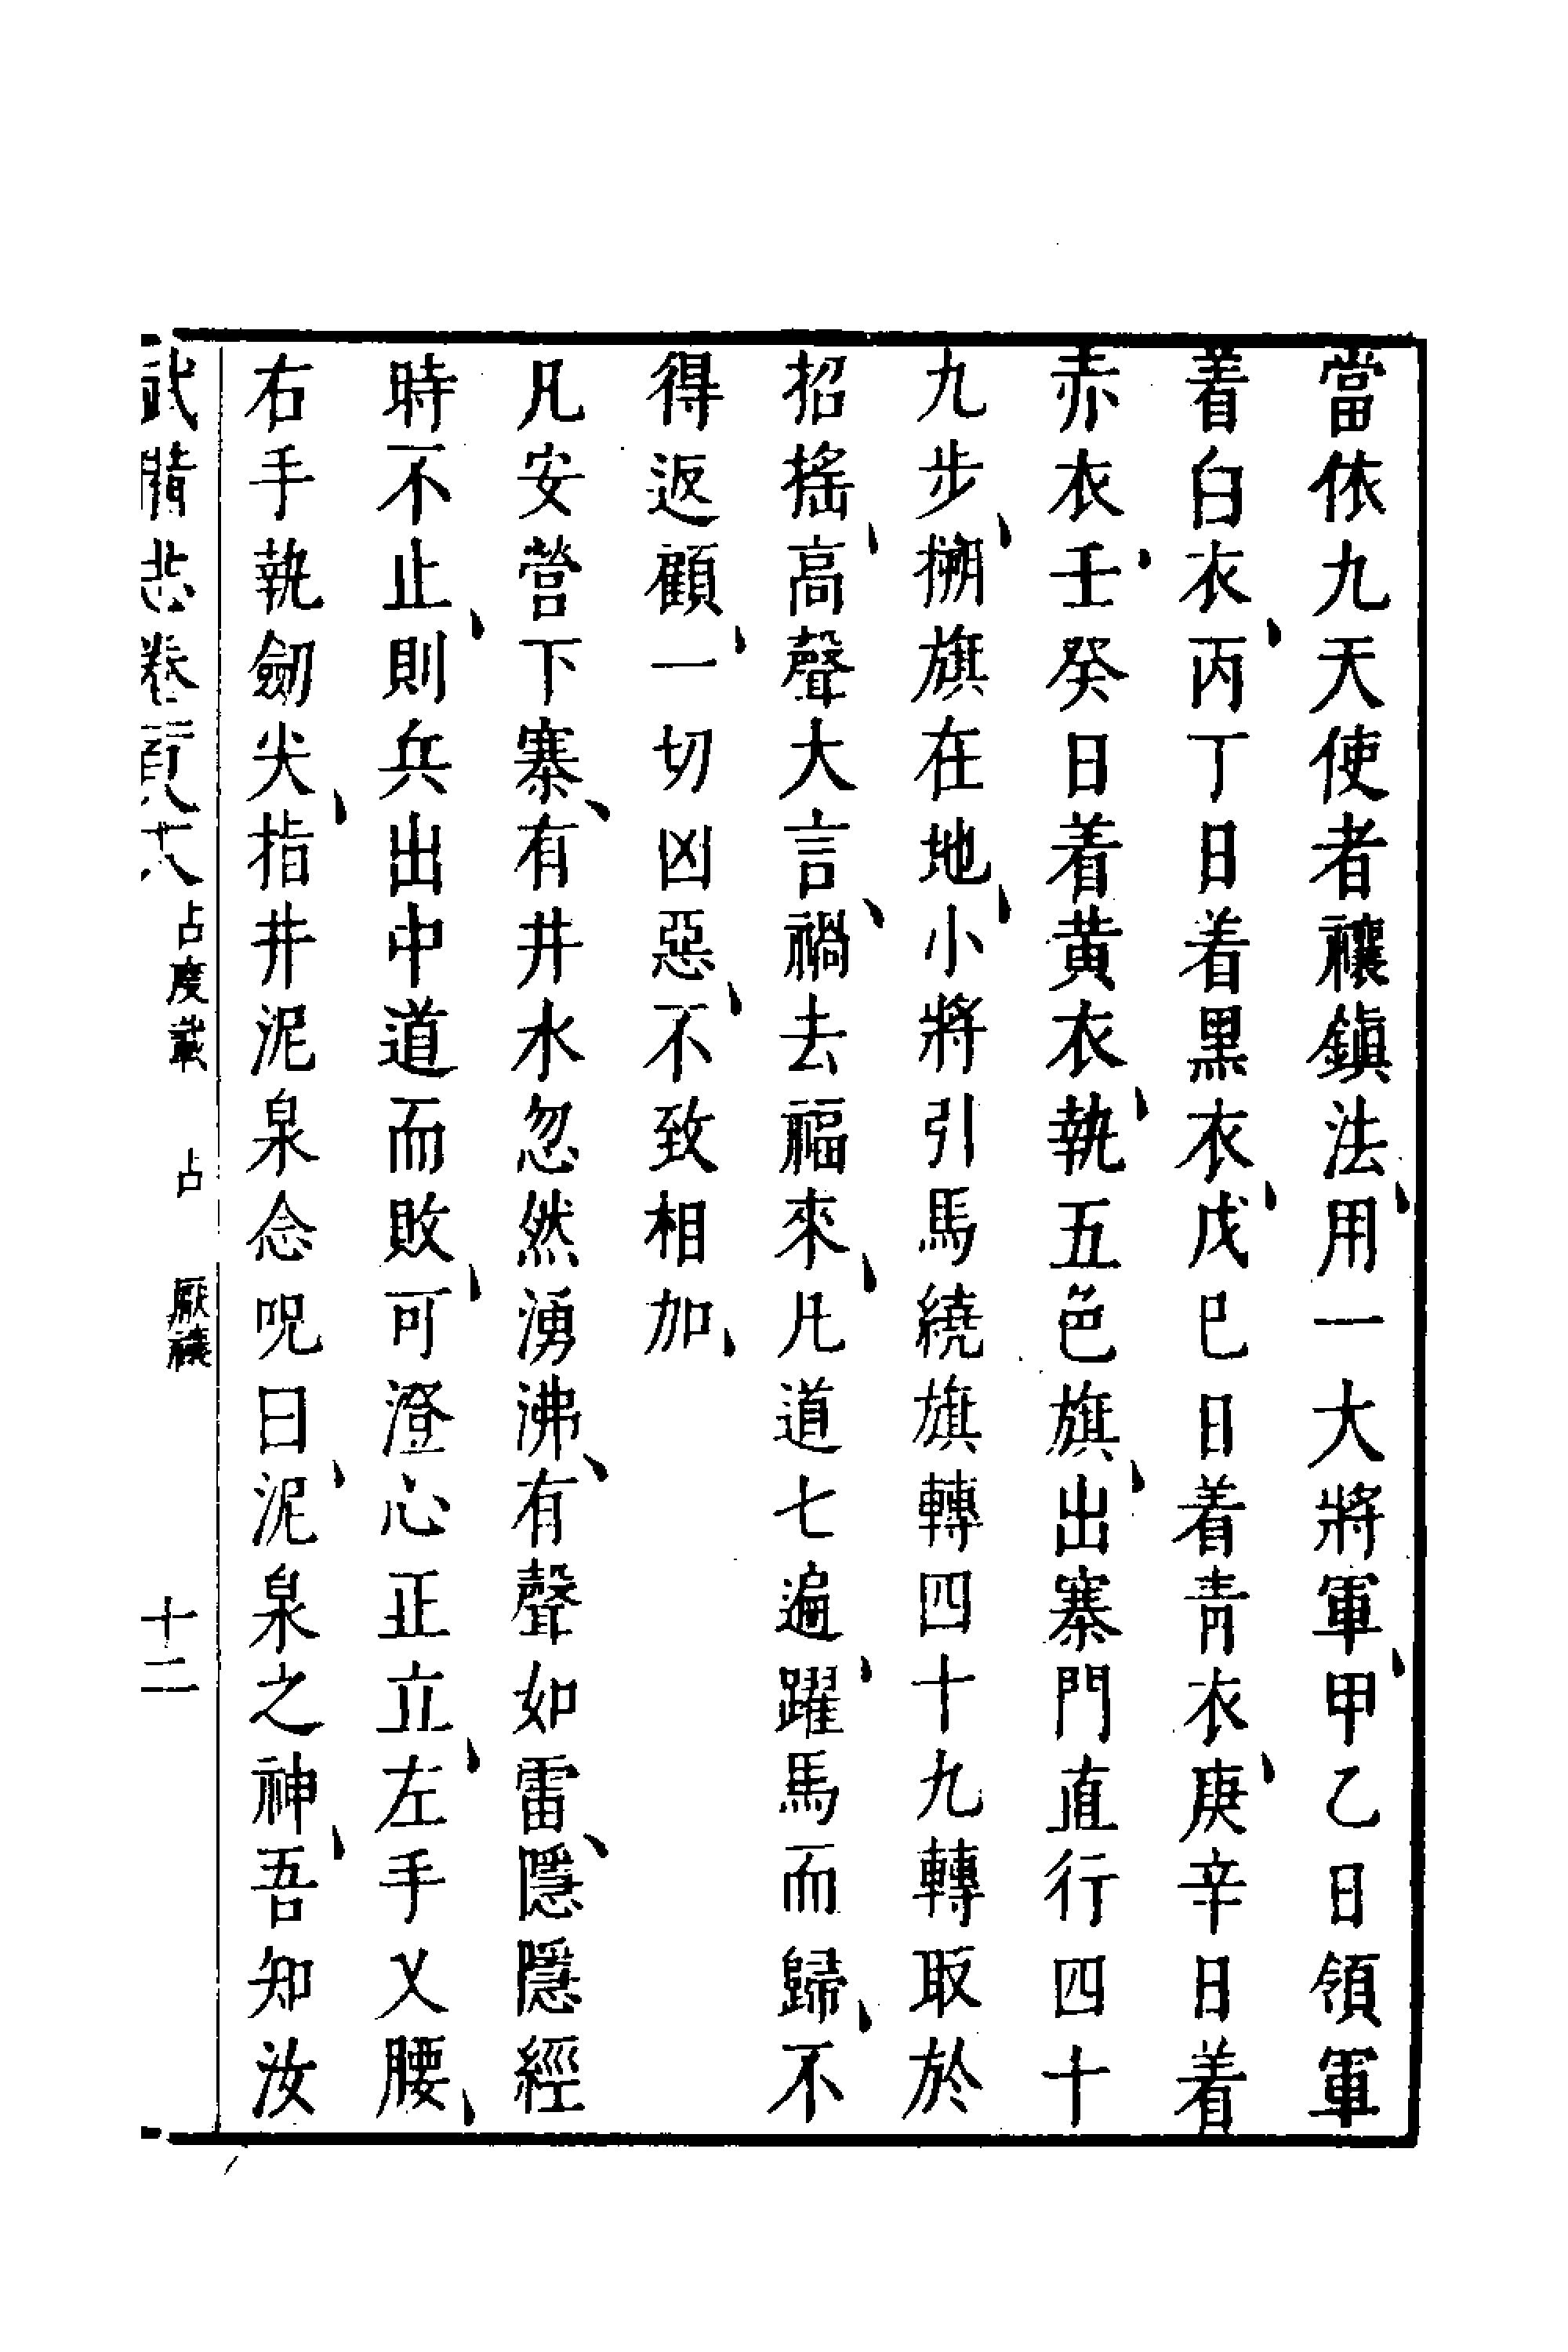 當依九天使者禳鎮法用一大將軍甲乙日領軍
着白衣丙丁日着黒衣戊巳日着青衣庚辛日着
赤衣壬癸日着黄衣執五色旗出寨門直行四十
九步搠旗在地小將引馬繞旗轉四十九轉取於
招搖高聲大言禍去福來凡道七遍躍馬而歸不
得返顧一切凶惡不致相加
凡安營下寨有井水忽然湧沸有聲如雷隱隱經
時不止則兵出中道而敗可澄心正立左手乂腰
右手執劒尖指井泥泉念呪曰泥泉之神吾知汝
武備志卷一百八十八 占度載 占 厭禳 十二